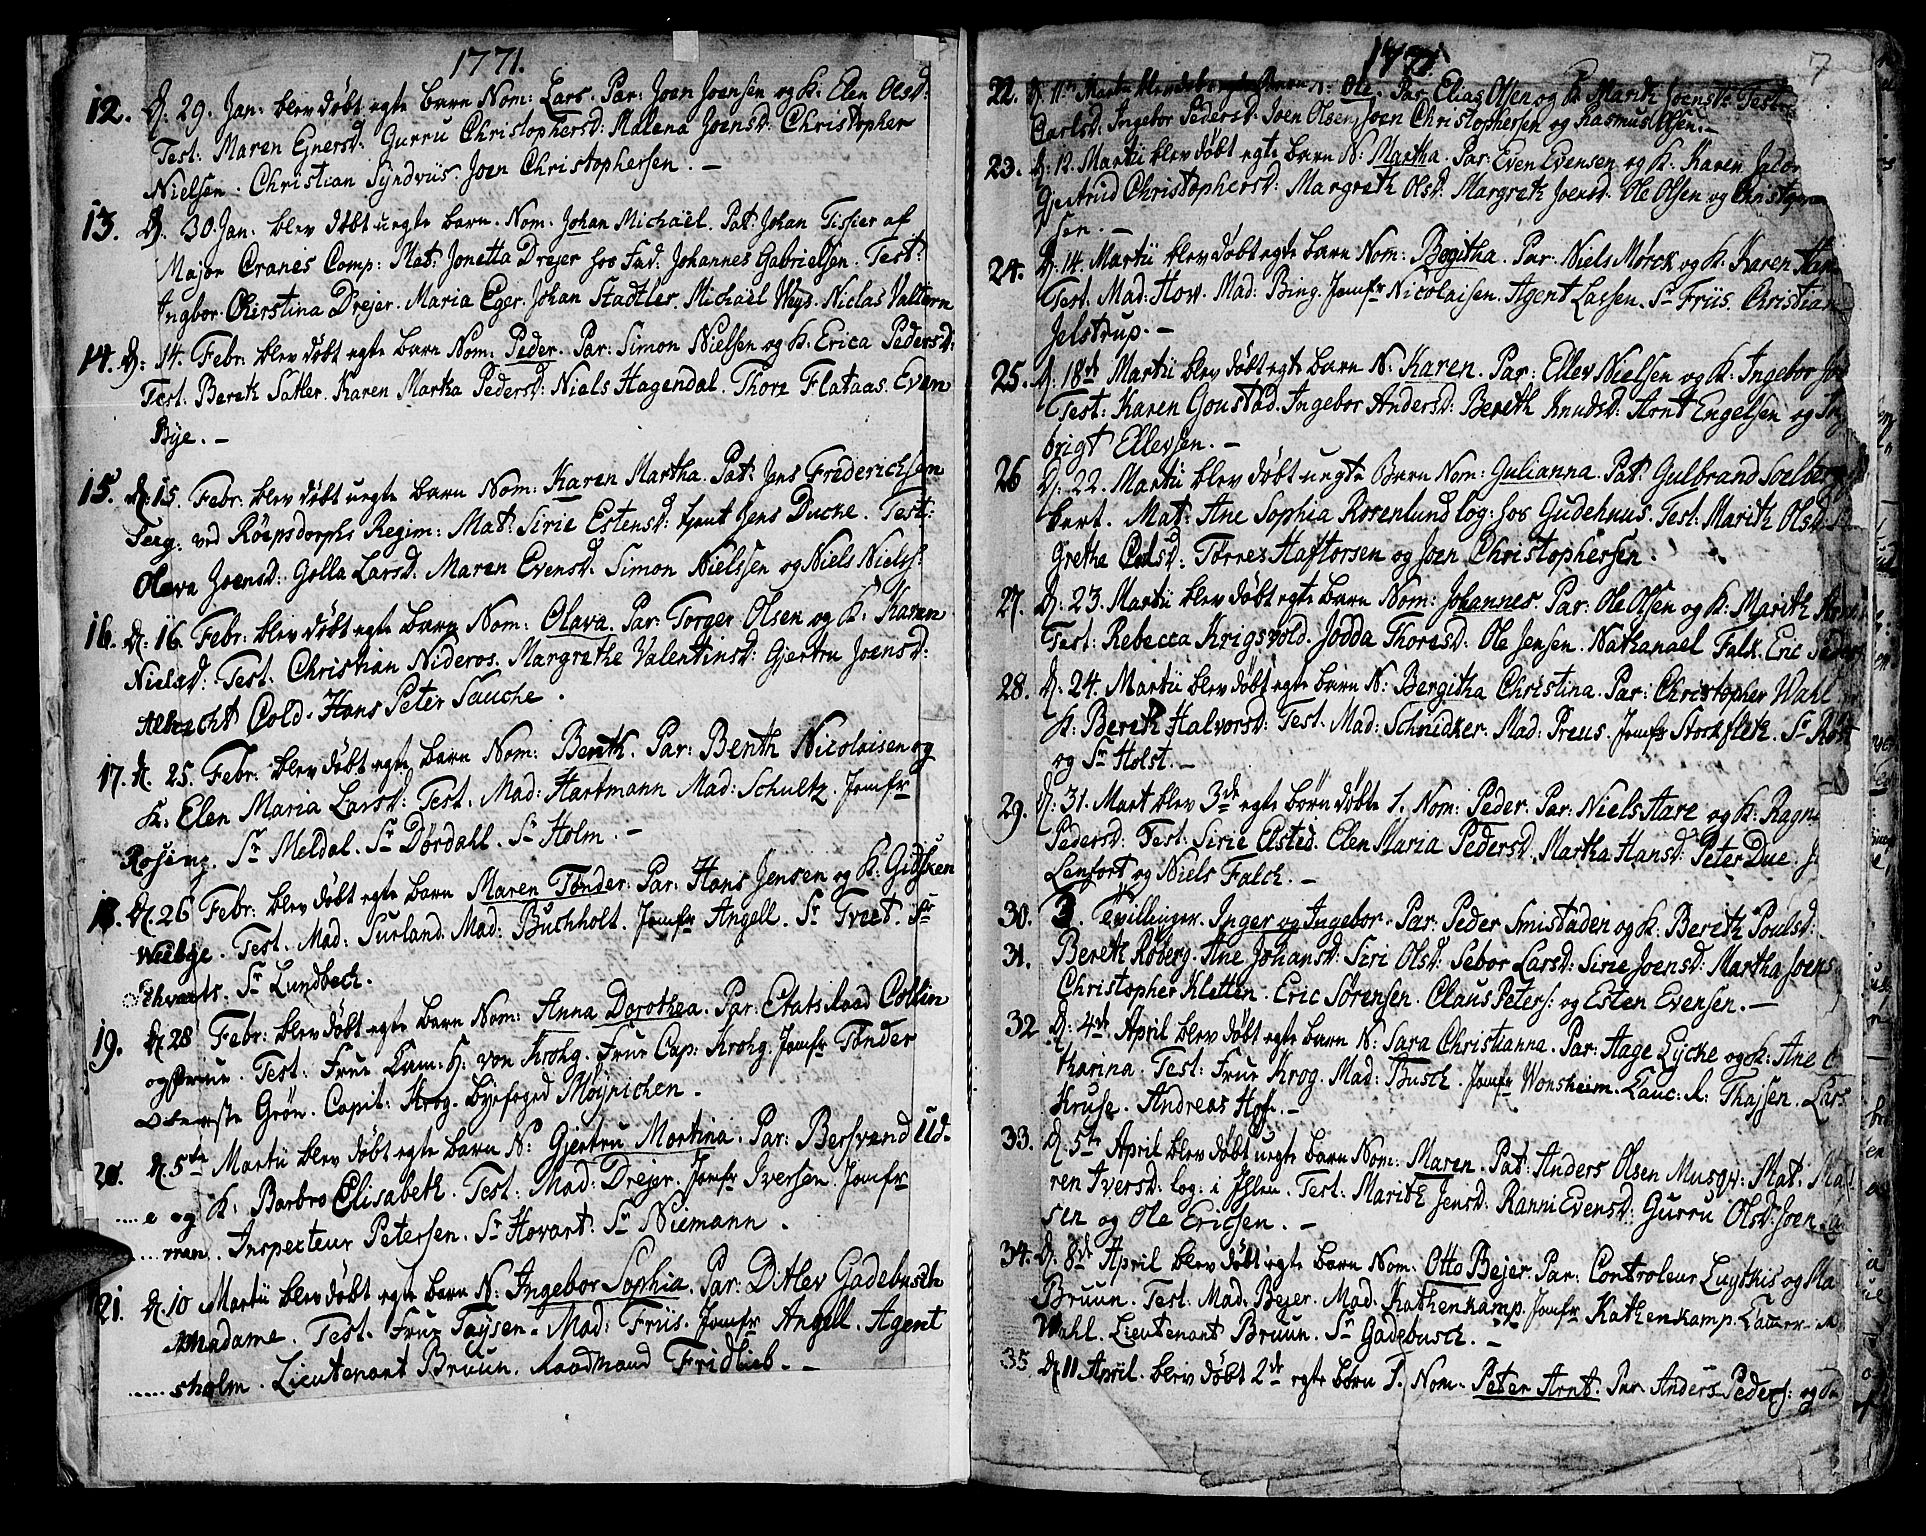 1771.
12. D: 29. Jan: blev døbt egte barn Nom: Lars. Par: Joen Joensen og K: Elen Olsd:
Test: Maren Ejnersd: Gurru Christophersd: Malena Joensd: Christopher
Nielsen. Christian Syndviis. Joen Christophersen. –
13. D. 30. Jan: blev døbt uegte barn. Nom. Johan Michaël. Pat: Johan Tissier af
Major Cranes Comp: Mat: Jonetta Drejer hos Fad: Johannes Gabrielsen. Test:
Ingbor Chirstina Drejer. Maria Eger. Johan Stadtler Michaël Weys. Niclas Valturn
14. D: 14. Febr: blev døbt egte barn Nom: Peder. Par: Simon Nielsen og K: Erica Pedersd:
Test: Bereth Satler. Karen Martha Pedersd: Niels Hagendal. Thore Flataas Even
Bye. –
15. D: 15. Febr: blev døbt uegte barn Nom: Karen Martha. Pat: Jens Frederichsen
Terg: ved Röepsdorphs Regim: Mat: Sirie Estensd: tjent Jens Duche. Test:
Olava Joensd: Golla Larsd. Maren Evensd. Simon Nielssen og Niels Niels:
16. D: 16. Febr: blev døbt egte barn Nom: Olava. Par: Torger Olsen og K: Karen
Nielsd: Test: Christian Nideros. Margrethe Valentinsd: Gjertru Joensd:
Albracht Cold. Hans Peter Tauche.
17. D. 25. Febr: blev døbt egte barn Nom: Bereth. Par: Benth Nicolaisen og
K: Elen Maria Larsd: Test. Mad: Hartmann Mad: Schultz. Jomfr
Rosing. Sr Meldal. Sr Dørdahl. Sr Holm. –
18. D. 26 Febr: blev døbt egte barn Maren Tønder. Par: Hans Jensen og K: Gidsken
Wiebge. Test. Mad: Surland. Mad: Buchholt. Jomfr Angell. Sr Tvet. Sr
Ehvarts. Sr Lundbech.
19. D. 28 Febr: blev døbt egte barn Nom: Anna Dorothea. Par: Etats Raad Collin
og Frue. Test: Frue Cam. H: von Krohg. Frue Cap: Krohg. Jomfr Tønder
Oberste Grøn. Capit: Krog. byefoged Möjnichen.
20. D. 5te Martii blev døbt egte barn N: Gjertru Martina. Par: Bersvend Ud-
....e og K: Barbro Elisabeth. Test. Mad: Drejer. Jomfr Iversen. Jomfr
....man. Inspecteur Petersen. Sr Hovart. Sr Niemann.
21. D. 10 Martii blev døbt egte barn N: Ingebor Sophia. Par: Ditlev Gadebusch
Madame. Test. Frue Tøysen. Mad: Friis. Jomfr Angell. Agent
.....sholm. Lieutenant Bruun. Raadmand Fridlieb. –
1771. 7
22. D. 11te Martii blev døbt egte barn N: Ole. Par. Elias Olsen og K: Marith Joensd: Test:
Carlsd: Ingebor Pedersd: Joen Olsen Joen Christophersen og Rasmus Olsen. –
23. D: 12. Martii blev døbt egte barn N: Martha. Par: Even Evensen og K: Karen Jacob
Gjertrud Christophersd: Margreth Olsd: Margreth Joensd: Ole Olsen og Christopher
sen. –
24. D: 14. Martii blev døbt egte barn Nom: Begitha. Par: Niels Mørck og K: Karen Han
Test. Mad: How. Mad: Bing. Jomfr Nicolaisen. Agent Lassen. Sr Friis. Christian
Jelstrup. –
25. D. 18de Martii blev døbt egte barn N: Karen. Par: Ellev Nielsen og K: Ingebor Jo
Test: Karen Goustad. Ingebor Andersd: Bereth Knudsd: Arnt Engelsen og Ing
brigt Ellevsen. –
26 D: 22. Martii blev døbt uegte Barn Nom: Gulianna. Pat: Gulbrand Soelberg
bert. Mat: Ane Sophia Rosenlund log: hos Gudehnus. Test: Marith Olsd:
Grethe Colsd: Tørres Haftorsen og Joen Christophersen.
27. D: 23. Martii blev døbt egte barn Nom: Johannes. Par: Ole Olsen og K: Marith
Test: Rebecca Krigsvold. Jodda Thoresd: Ole Jensen. Nathanael Falx. Eric Peders
28. D: 24. Martii blev døbt egte barn N: Bergitha Christina. Par: Christopher Wahl
K: Bereth Halvorsd: Test. Mad: Schnidker. Mad: Preus. Jomfr Stockfleth. Sr
og Sr Holst. –
29. D: 31. Mart blev 3de egte børn døbte 1. Nom: Peder. Par: Niels Aare og K: Ragn
Pedersd: Test: Sirie Elsted. Elen Maria Pedersd. Martha Hansd: Peter Due
Lenfort og Niels Falch. –
30. 3. Tvillinger. Inger og Ingebor. Par: Peder Smistaden og K: Bereth Poulsd:
31. Bereth Roberg. Ane Johansd: Siri Olsd: Sebor Larsd: Sirie Joensd: Martha Joens
Christopher Kletten. Eric Sørensen. Claus Peters: og Esten Evensen. –
32 D: 4de April blev døbt egte barn N: Sara Christianna. Par: Aage Lycke og K: Ane C
tharina. Test: Frue Krog. Mad: Busch. Jomfr Wonsheim. Canc. R: Thaysen. Lars
Kruse. Andreas Hof. –
33. D. 5te April blev døbt uegte barn Nom: Maren. Pat: Anders Olsen Musqv: Mat: Ma
ren Iversd: log: i Ihlen. Test: Marith Jensd: Ranni Evensd: Gurru Olsd: Joen La
sen og Ole Ericsen. –
34. D. 8de April blev døbt egte barn Nom: Otto Bejer. Par: Controleur Luythis og Ma
Bruun. Test. Mad: Bejer. Mad: Kathenkamp. Jomfr Kathenkamp.
Wahl. Lieutenant Bruun. Sr Gadebusch. –
35 D. 11 April. blev døbt 2de egte børn 1. Nom. Peter Arnt. Par Anders Peders: og